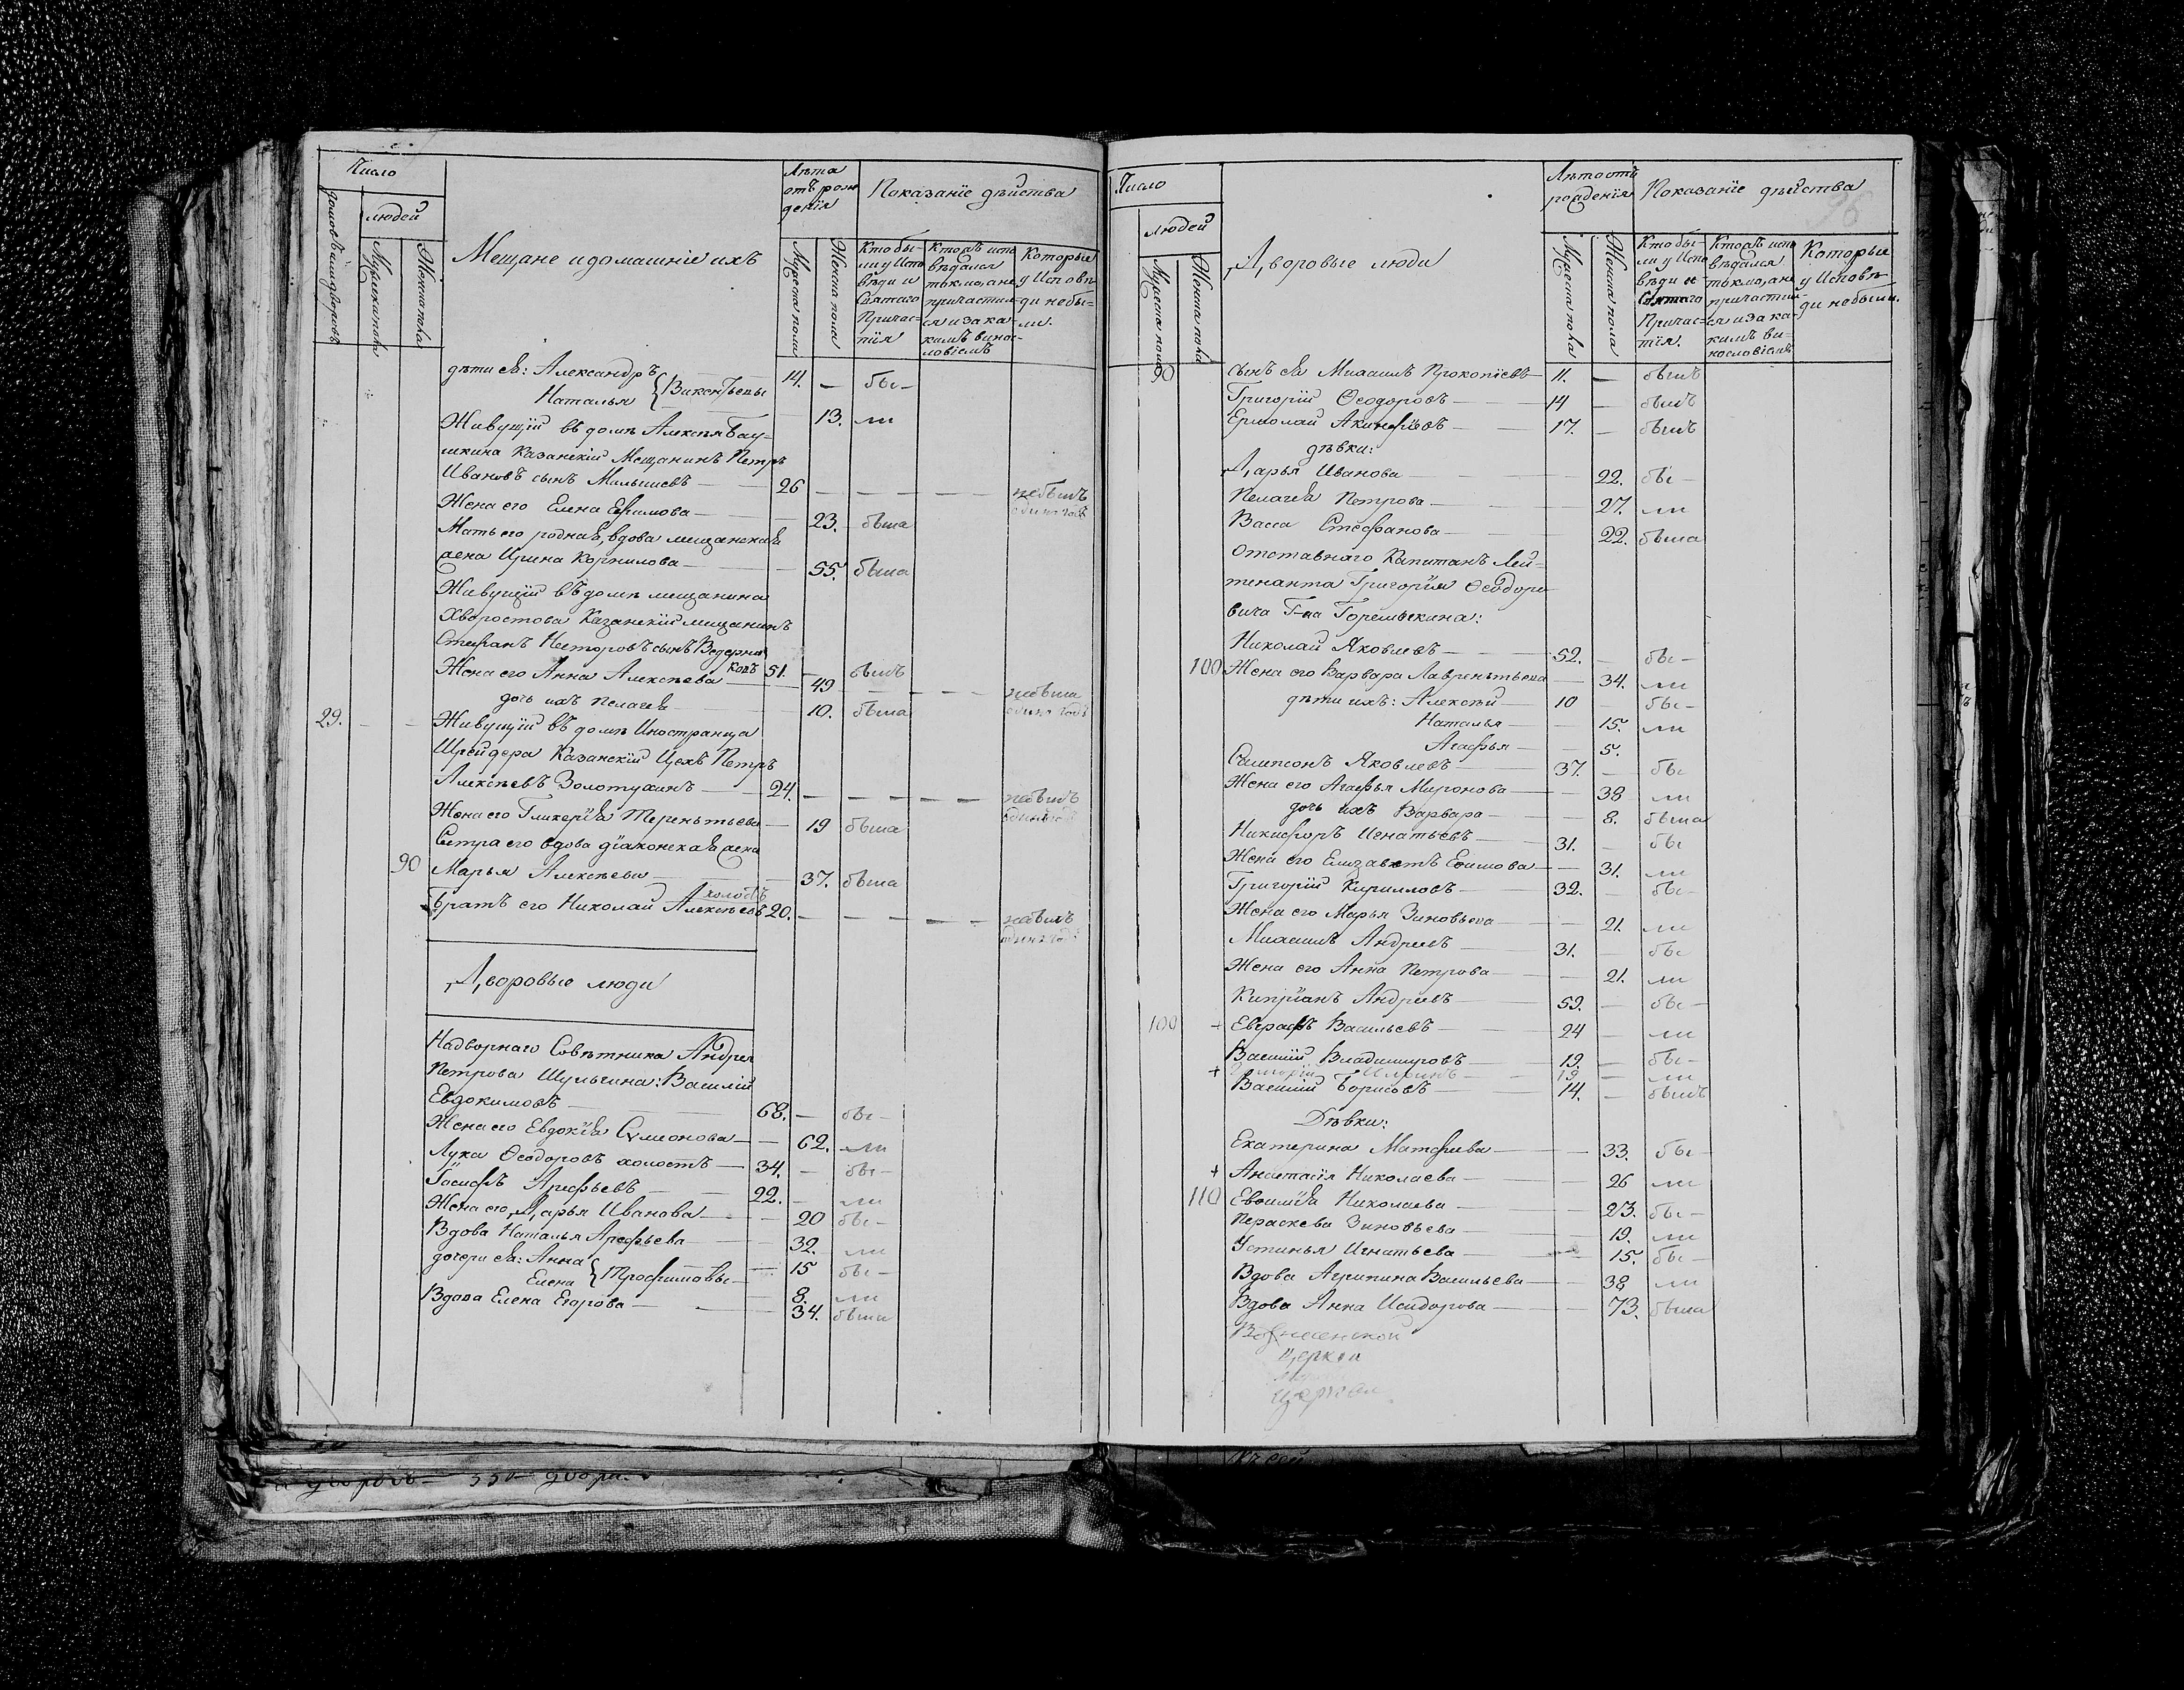 Число
домовъ или дворовъ
людей
Мужеска пола
Женска пола
Мещане и домашніе ихъ
Лѣта
отъ рож
денія
Мужеска пола
Женска пола
Показаніе дѣйства
Кто бы-
ли у Испо
вѣди и
Святаго
Причас-
тія
Кто изъ испо
вѣдался
токмо, а не
причастил-
ся и за ка-
кимъ вино-
словіемъ
Которые
у Исповѣ
ди не бы-
ли.
дѣти ея: Александръ 14. — бы-
Наталья } Викентьевы 13. ли
Живущій въ домѣ Алексѣя Бау-
шкина Казанскій Мещанинъ Петръ
Ивановъ сынъ Малышевъ — 26 — — — — небылъ
Жена его Елена Ефимова — 23. была одинъ годъ
Мать его родная, вдова мещанская
жена Ирина Корнилова — 55. была
Живущій въ домѣ мещанина
Хворостова Казанскій мещанинъ
Стефанъ Несторовъ сынъ Ведерни
ковъ 51. — былъ
Жена его Анна Алексѣева — 49 — — — небыла
дочь ихъ Пелагея — 10. была одинъ годъ
29. — — Живущій въ домѣ Иностранца
Шрейдера Казанскій Цехъ Петръ
Алексѣевъ Золотухинъ — 24. — — — — небылъ
Жена его Гликерія Терентьева — 19 была одинъ годъ
Сестра его вдова діаконская жена
90 Марья Алексѣева — 37. была
холостъ
Братъ его Николай Алексѣевъ 20. — — — — небылъ
одинъ годъ
Дворовые люди
Надворнаго Совѣтника Андрея
Петрова Шульгина: Василій
Евдокимовъ — 68. — бы-
Жена его Евдокія Сѵмеонова — 62. ли
Лука Ѳеодоровъ холостъ — 34. — бы-
Іосифъ Арефьевъ — 22. — ли
Жена его Дарья Иванова — 20 бы-
Вдова Наталья Арефьева — 32. ли
дочери ея: Анна — 15 бы-
Елена } Трофимовы — 8. ли
Вдова Елена Егорова — 34. была
Число
людей
Мужеска пола
Женска пола
Дворовые люди
Лѣта отъ
рожденія
Мужеска пола
Женска пола
Показаніе дѣйства
96
Кто бы-
ли у Испо
вѣди и
Святаго
Причас-
тія.
Кто изъ испо
вѣдался
токмо, а не
причастил-
ся и за ка-
кимъ ви-
нословіемъ
Которые
у Исповѣ-
ди небыли.
90 сынъ ея Михаилъ Прокопіевъ — 11. — былъ
Григорій Ѳеодоровъ — 14 — былъ
Ермолай Акинфіевъ — 17. — былъ
дѣвки:
Дарья Иванова — 22. бы-
Пелагея Петрова — 27. ли
Васса Стефанова — 22. была
Отставнаго Капитанъ Лей-
тенанта Григорія Ѳеодоро
вича Г-на Горемыкина:
Николай Яковлевъ — 52. — бы-
100 Жена его Варвара Лаврентьева — 34. ли
дѣти ихъ: Алексѣй — 10 — бы-
Наталья — 15. ли
Агафья — 5.
Сампсонъ Яковлевъ — 37. — бы
Жена его Агафья Миронова — 38 ли
дочь ихъ Варвара — 8. была
Никифоръ Игнатьевъ — 31. — бы
Жена его Елизаветъ Ефимова — 31. ли
Григорій Кирилловъ — 32. — бы-
Жена его Марья Зиновьева — 21. ли
Михаилъ Андреевъ — 31. — бы
Жена его Анна Петрова — 21. ли
Кипріанъ Андреевъ — 59. — бы-
100 + Евграфъ Васильевъ — 24 — ли
Василій Владимировъ — 19. — бы-
+ Григорій — 19. — ли
Василій Борисовъ — 14. — былъ
Дѣвки:
Екатерина Матфеева — 33. бы-
+ Анастасія Николаева — 26 ли
110 Евфимія Николаева — 23. бы-
Параскева Зиновьева — 19. ли
Устинья Игнатьева — 15. бы-
Вдова Агрипина Васильева — 38 ли
Вдова Анна Исидорова — 73. была
Вознесенской
Церкви
Церкви